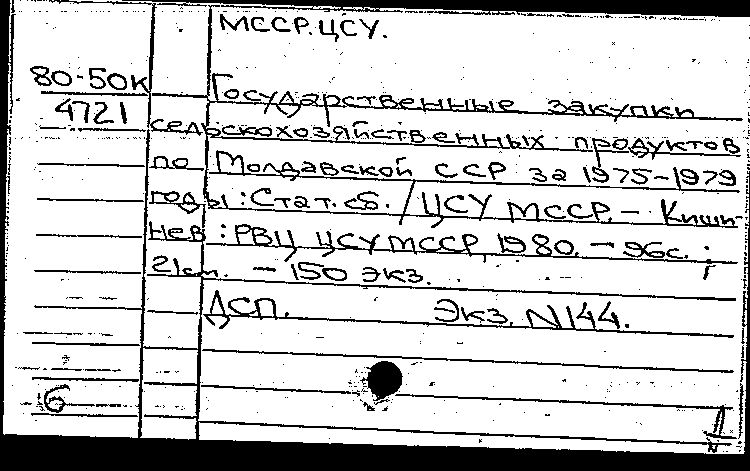 МССР. ЦСУ.
80-50К
4721
Государственные закупки
сельскохозяйственных продуктов
по Молдавской ССР за 1975-1979
годы : Стат. сб. / ЦСУ МССР. - Киши-
нев : РВЦ ЦСУ МССР, 1980. - 96с. ;
21см. - 150 экз.
ДСП. Экз. N144.
б